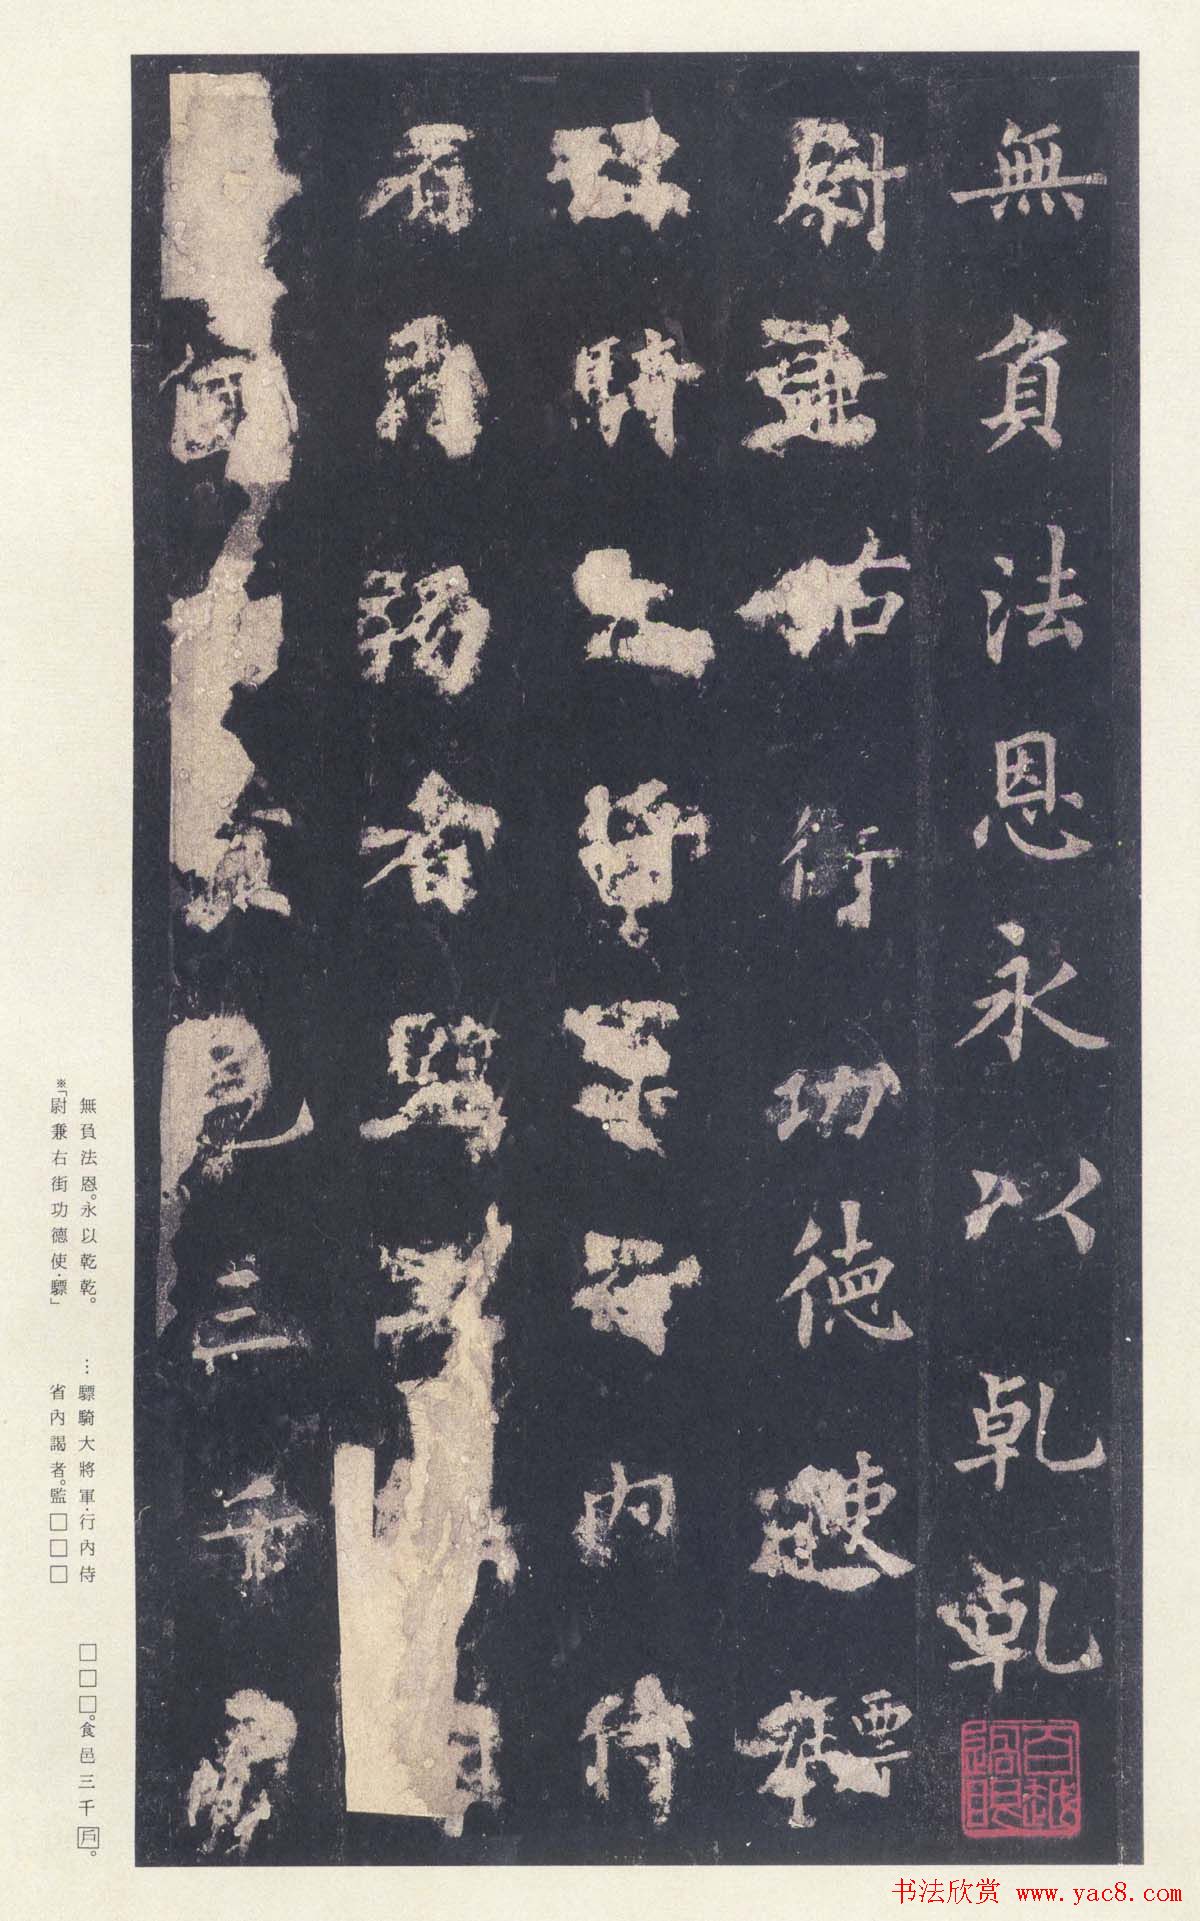 無負法恩永以乹乹
尉兼右街功德使驃
騎大將軍行內侍
省內謁者監
食邑三千
無負法恩。永以乾乾。
※「尉兼右街功德使·驃」
…驃騎大將軍·行內侍
省內謁者。監□□□
□□□。食邑三千戶。
书法欣赏 www.yac8.com